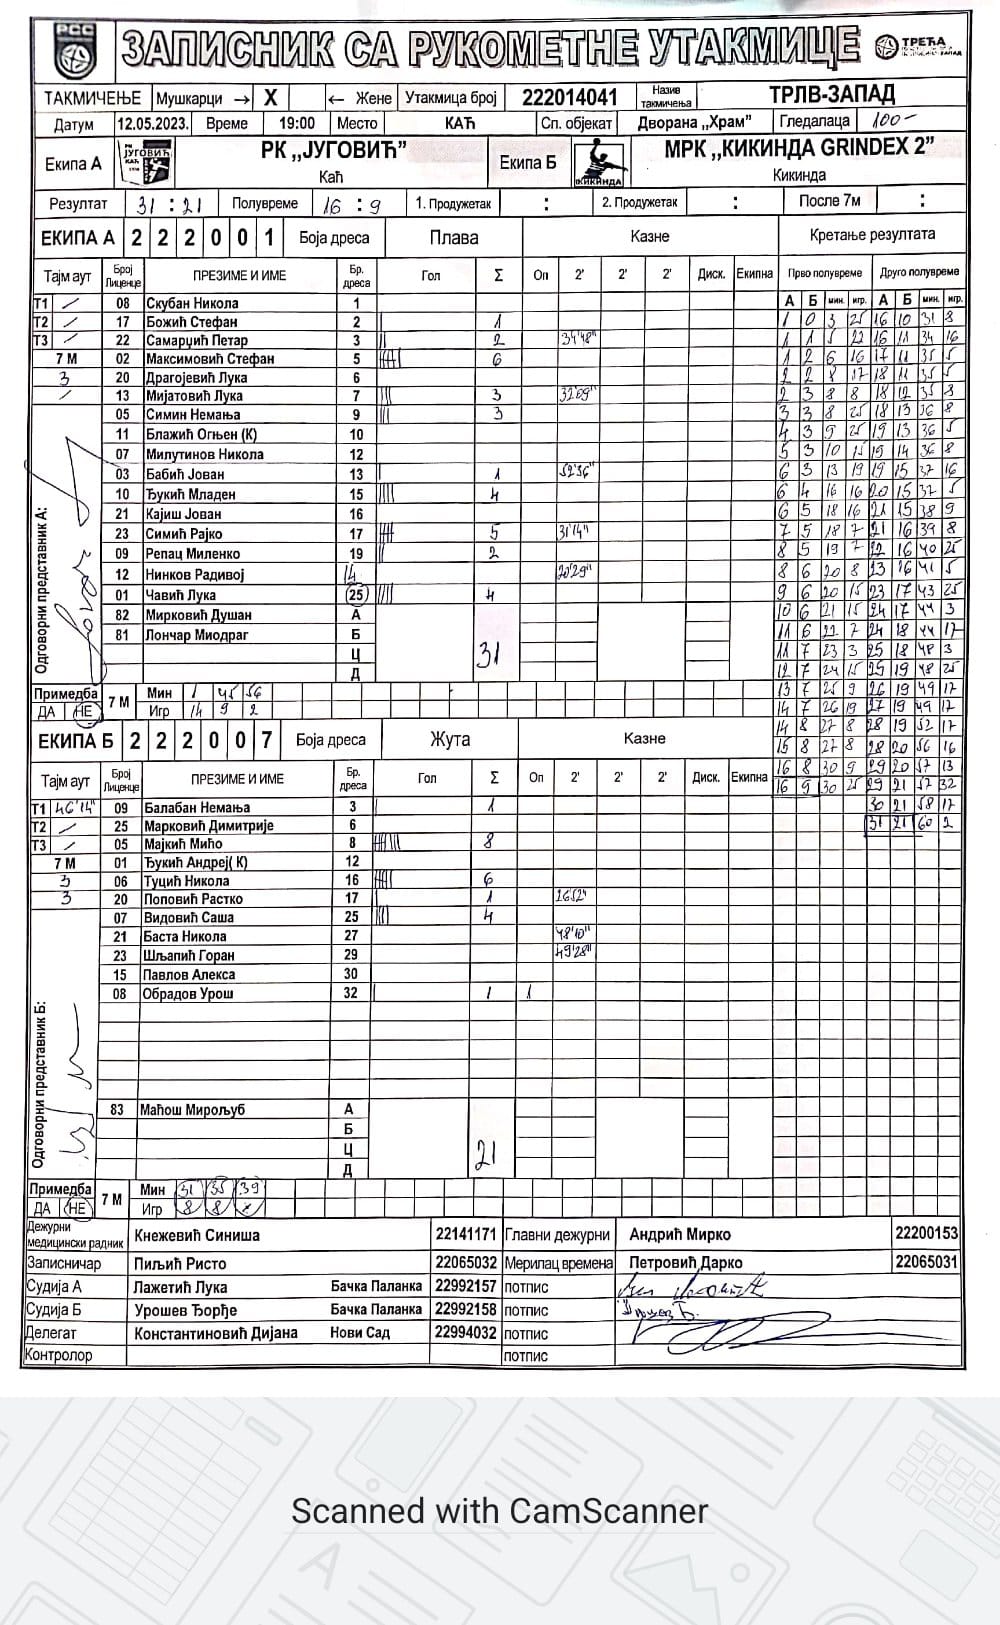 РСС
ЗАПИСНИК СА РУКОМЕТНЕ УТАКМИЦЕ ТРЕЋА
ТАКМИЧЕЊЕ Мушкарци → X ← Жене Утакмица број 222014041 Назив такмичења ТРЛВ-ЗАПАД
Датум 12.05.2023. Време 19:00 Место КАЋ Сп. објекат Дворана „Храм” Гледалаца 100-
Екипа А РК „ЈУГОВИЋ” Каћ Екипа Б МРК „КИКИНДА GRINDEX 2” Кикинда
Резултат 31 : 21 Полувреме 16 : 9 1. Продужетак : 2. Продужетак : После 7м :
ЕКИПА А 2 2 2 0 0 1 Боја дреса Плава Казне Кретање резултата
Тајм аут Број Лиценце ПРЕЗИМЕ И ИМЕ Бр. дреса Гол Σ Оп 2' 2' 2' Диск. Екипна Прво полувреме Друго полувреме
А Б мин. игр. А Б мин. игр.
Т1 / 08 Скубан Никола 1
1 0 3 25 16 10 31 8
Т2 / 17 Божић Стефан 2 | 1
1 1 5 22 16 11 34 16
Т3 / 22 Самарџић Петар 3 || 2 34'48"
1 2 6 16 17 11 35 5
7 М 02 Максимовић Стефан 5 6
2 2 8 17 18 11 35 5
3 20 Драгојевић Лука 6
2 3 8 8 18 12 35 8
/ 13 Мијатовић Лука 7 ||| 3 32'09"
3 3 8 25 18 13 36 8
05 Симин Немања 9 ||| 3
4 3 9 25 19 13 36 5
11 Блажић Огњен (К) 10
5 3 10 15 19 14 36 8
07 Милутинов Никола 12
6 3 13 19 19 15 37 16
03 Бабић Јован 13 | 1 52'36"
6 4 16 16 20 15 37 5
10 Ђукић Младен 15 |||| 4
6 5 18 16 21 15 38 9
21 Кајиш Јован 16
7 5 18 7 21 16 39 8
23 Симић Рајко 17 5 31'14"
8 5 19 7 22 16 40 25
09 Репац Миленко 19 || 2
8 6 20 8 23 16 41 5
12 Нинков Радивој 14 20'29"
9 6 20 15 23 17 43 25
01 Чавић Лука 25 |||| 4
10 6 21 15 24 17 44 3
82 Мирковић Душан А
11 6 22 7 24 18 44 17
81 Лончар Миодраг Б
11 7 23 3 25 18 48 3
Ц 31
12 7 24 15 25 19 48 25
Д
Одговорни представник А:
13 7 25 9 26 19 49 17
Примедба 7 М Мин 1 45 56
14 7 26 19 27 19 49 17
ДА НЕ Игр 14 9 2
14 8 27 8 28 19 52 17
ЕКИПА Б 2 2 2 0 0 7 Боја дреса Жута Казне
15 8 27 8 28 20 56 16
16 8 30 9 29 20 57 13
Тајм аут Број Лиценце ПРЕЗИМЕ И ИМЕ Бр. дреса Гол Σ Оп 2' 2' 2' Диск. Екипна
16 9 30 25 29 21 57 32
Т1 46'14" 09 Балабан Немања 3 | 1
30 21 58 17
Т2 / 25 Марковић Димитрије 6
31 21 60 2
Т3 / 05 Мајкић Мићо 8 8
7 М 01 Ђукић Андреј( К) 12
3 06 Туцић Никола 16 6
3 20 Поповић Растко 17 | 1 26'52"
07 Видовић Саша 25 4
21 Баста Никола 27 48'10"
23 Шљапић Горан 29 49'28"
15 Павлов Алекса 30
08 Обрадов Урош 32 | 1 1
Одговорни представник Б:
83 Маћош Мирољуб А
Б
Ц 21
Д
Примедба 7 М Мин 31 35 39
ДА НЕ Игр 8 8 x
Дежурни медицински радник Кнежевић Синиша 22141171 Главни дежурни Андрић Мирко 22200153
Записничар Пиљић Ристо 22065032 Мерилац времена Петровић Дарко 22065031
Судија А Лажетић Лука Бачка Паланка 22992157 потпис
Судија Б Урошев Ђорђе Бачка Паланка 22992158 потпис Урошев Ђ.
Делегат Константиновић Дијана Нови Сад 22994032 потпис
Контролор потпис
Scanned with CamScanner